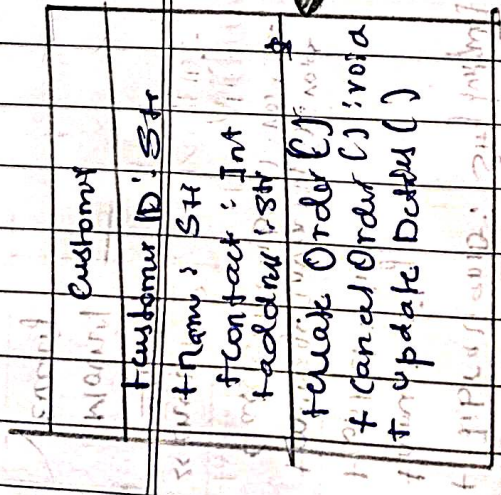 Customer
+ customer ID : Str
+ Name : Str
+ contact : Int
+ address : Str
+ create Order ()
+ Cancel Order () : void
+ update Details ()